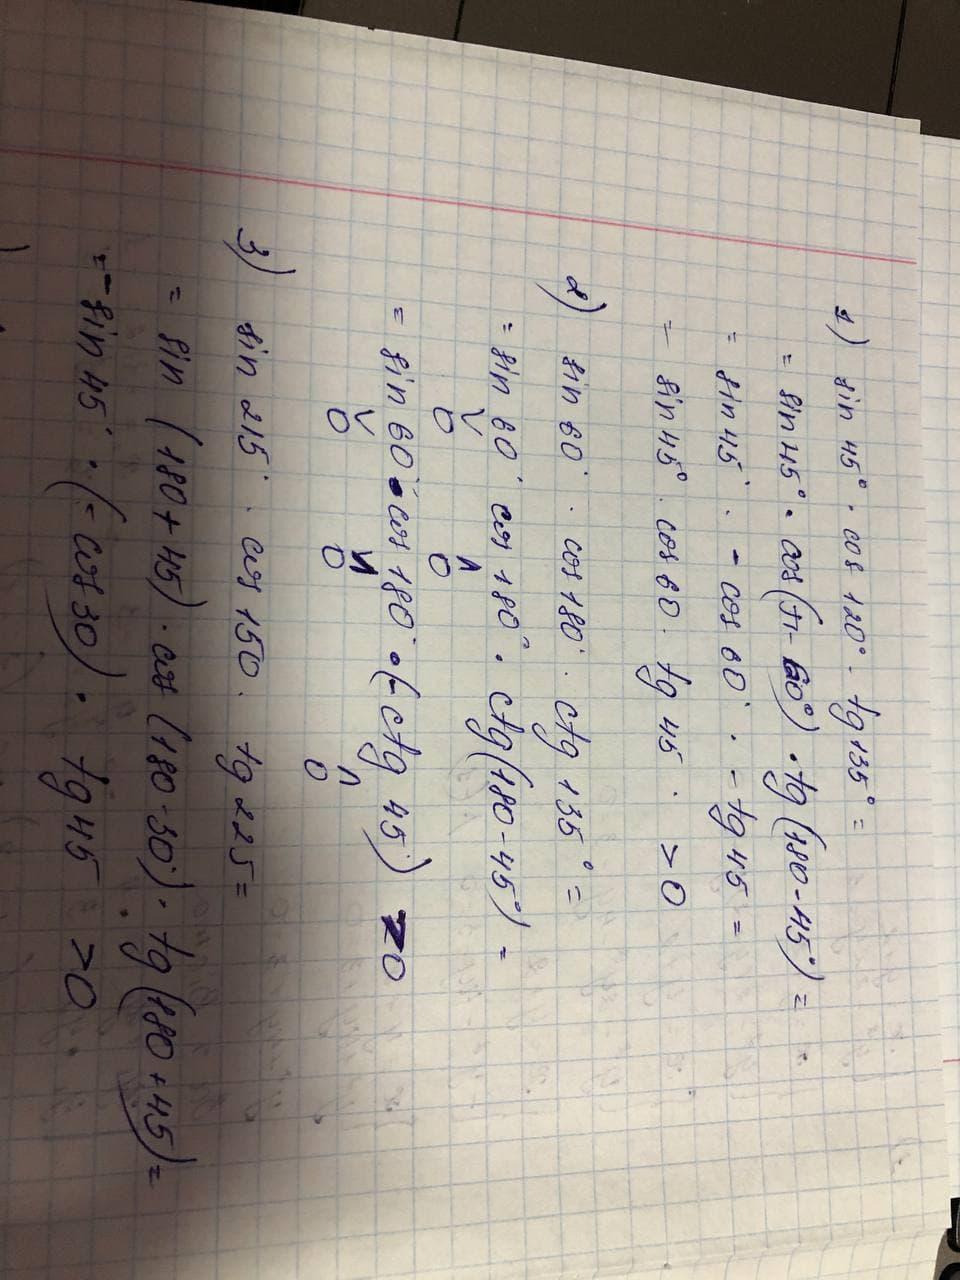 1) sin 45° · cos 120° · tg 135° =
= sin 45° · cos(π - 60°) · tg(180-45°) =
= sin 45° · - cos 60° · - tg 45 =
= sin 45° · cos 60 · tg 45 · > 0
2) sin 60° · cos 180° · ctg 135° =
= sin 60° cos 180° · ctg(180-45°) =
V Λ
0 0
= sin 60° · cos 180° · (- ctg 45) > 0
V Λ Λ
0 0 0
3) sin 215° · cos 150 · tg 225 =
= sin (180+45) · cos (180-30) · tg(180+45) =
= - sin 45° · (- cos 30) · tg 45 > 0